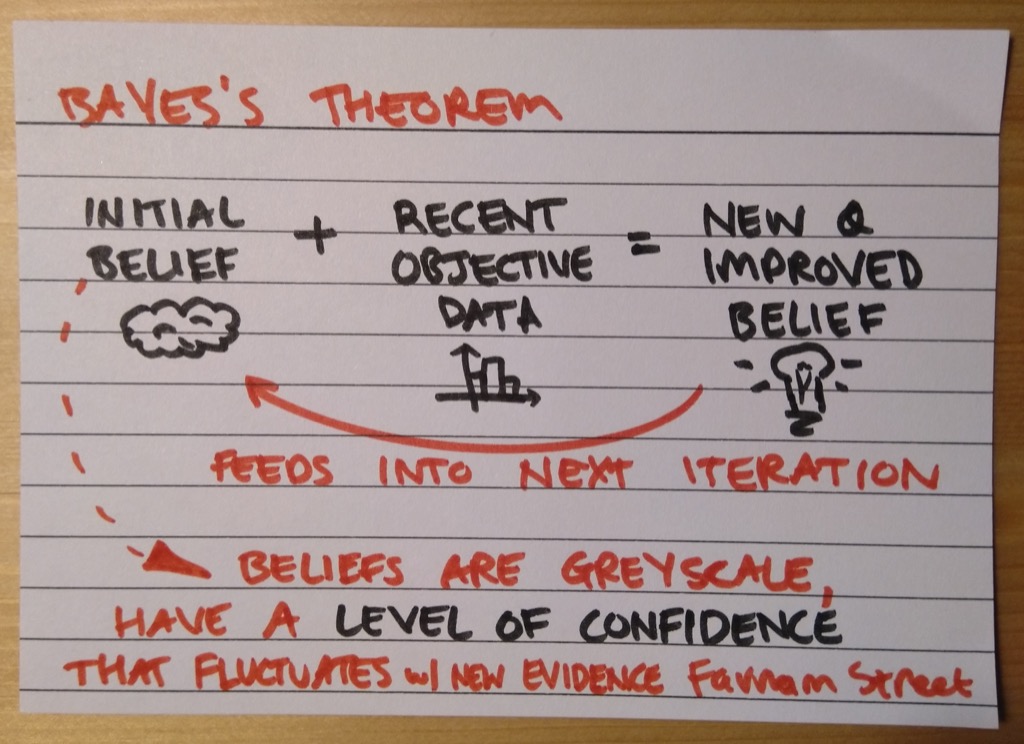 BAYES'S THEOREM
INITIAL BELIEF + RECENT OBJECTIVE DATA = NEW & IMPROVED BELIEF
FEEDS INTO NEXT ITERATION
BELIEFS ARE GREYSCALE,
HAVE A LEVEL OF CONFIDENCE
THAT FLUCTUATES w/ NEW EVIDENCE Farnam Street